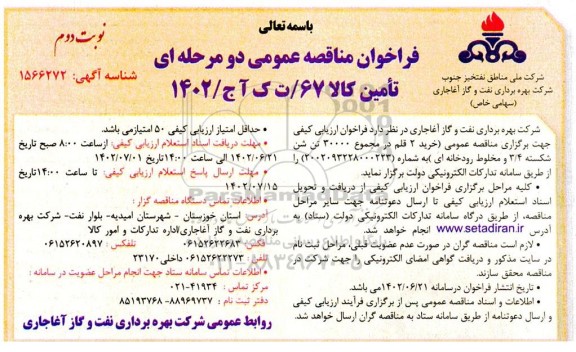 باسمه تعالی
نوبت دوم
فراخوان مناقصه عمومی دو مرحله ای
تأمین کالا ۶۷/ت ک آ ج/۱۴۰۲
شناسه آگهی: ۱۵۶۶۲۷۲
شرکت ملی مناطق نفتخیز جنوب
شرکت بهره برداری نفت و گاز آغاجاری
(سهامی خاص)
شرکت بهره برداری نفت و گاز آغاجاری در نظر دارد فراخوان ارزیابی کیفی
جهت برگزاری مناقصه عمومی (خرید ۲ قلم در مجموع ۳۰۰۰۰ تن شن
شکسته ۳/۴ و مخلوط رودخانه ای) به شماره (۲۰۰۲۰۹۳۲۲۸۰۰۰۲۲۳) را
از طریق سامانه تدارکات الکترونیکی دولت برگزار نماید.
• کلیه مراحل برگزاری فراخوان ارزیابی کیفی از دریافت و تحویل
اسناد استعلام ارزیابی کیفی تا ارسال دعوتنامه جهت سایر مراحل
مناقصه، از طریق درگاه سامانه تدارکات الکترونیکی دولت (ستاد) به
آدرس www.setadiran.ir انجام خواهد شد.
• لازم است مناقصه گران در صورت عدم عضویت قبلی، مراحل ثبت نام
در سایت مذکور و دریافت گواهی امضای الکترونیکی را جهت شرکت در
مناقصه محقق سازند.
• تاریخ انتشار فراخوان درسامانه ۱۴۰۲/۰۶/۲۱می باشد.
• اطلاعات و اسناد مناقصه عمومی پس از برگزاری فرآیند ارزیابی کیفی
و ارسال دعوتنامه از طریق سامانه ستاد به مناقصه گران ارسال خواهد شد.
• حداقل امتیاز ارزیابی کیفی ۵۰ امتیازمی باشد.
• مهلت دریافت اسناد استعلام ارزیابی کیفی: ازساعت ۸:۰۰ صبح تاریخ
۱۴۰۲/۰۶/۲۱ الی ساعت ۱۴:۰۰تاریخ ۱۴۰۲/۰۷/۰۱
• مهلت ارسال پاسخ استعلام ارزیابی کیفی: تا ساعت ۱۴:۰۰تاریخ
۱۴۰۲/۰۷/۱۵
• اطلاعات تماس دستگاه مناقصه گزار :
آدرس استان خوزستان - شهرستان امیدیه- بلوار نفت- شرکت بهره
برداری نفت و گاز آغاجاری/اداره تدارکات و امور کالا
تلفکس: ۰۶۱۵۲۶۲۲۶۸۳ تلفکس : ۰۶۱۵۲۶۲۰۸۹۷
تلفن: ۰۶۱۵۲۶۲۲۲۷۳ داخلی ۲۳۱۷۰
• اطلاعات تماس سامانه ستاد جهت انجام مراحل عضویت در سامانه :
مرکز تماس : ۴۱۹۳۴-۰۲۱
دفتر ثبت نام : ۸۸۹۶۹۷۳۷- ۸۵۱۹۳۷۶۸
روابط عمومی شرکت بهره برداری نفت و گاز آغاجاری